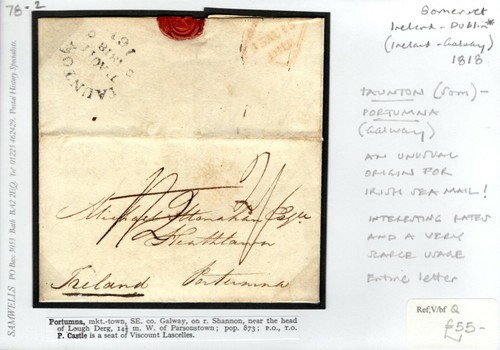 78-2
SAMWELLS PO Box 3033 Bath BA2 Tel 01225 462429, Postal History Specialists
TAUNTON
1818
Somerset
Ireland - Dublin*
(Ireland - Galway)
1818
TAUNTON (Som) -
PORTUMNA
(Galway)
AN UNUSUAL
ORIGIN FOR
IRISH SEA MAIL!
INTERESTING RATES
AND A VERY
SCARCE USAGE
Entire letter
Michael Monahan Esqr
Heathlawn
Portumna
Ireland
Portumna, mkt.-town, SE. co. Galway, on r. Shannon, near the head
of Lough Derg, 14½ m. W. of Parsonstown; pop. 873; P.O., T.O.
P. Castle is a seat of Viscount Lascelles.
Ref, V/bf Q
£55-